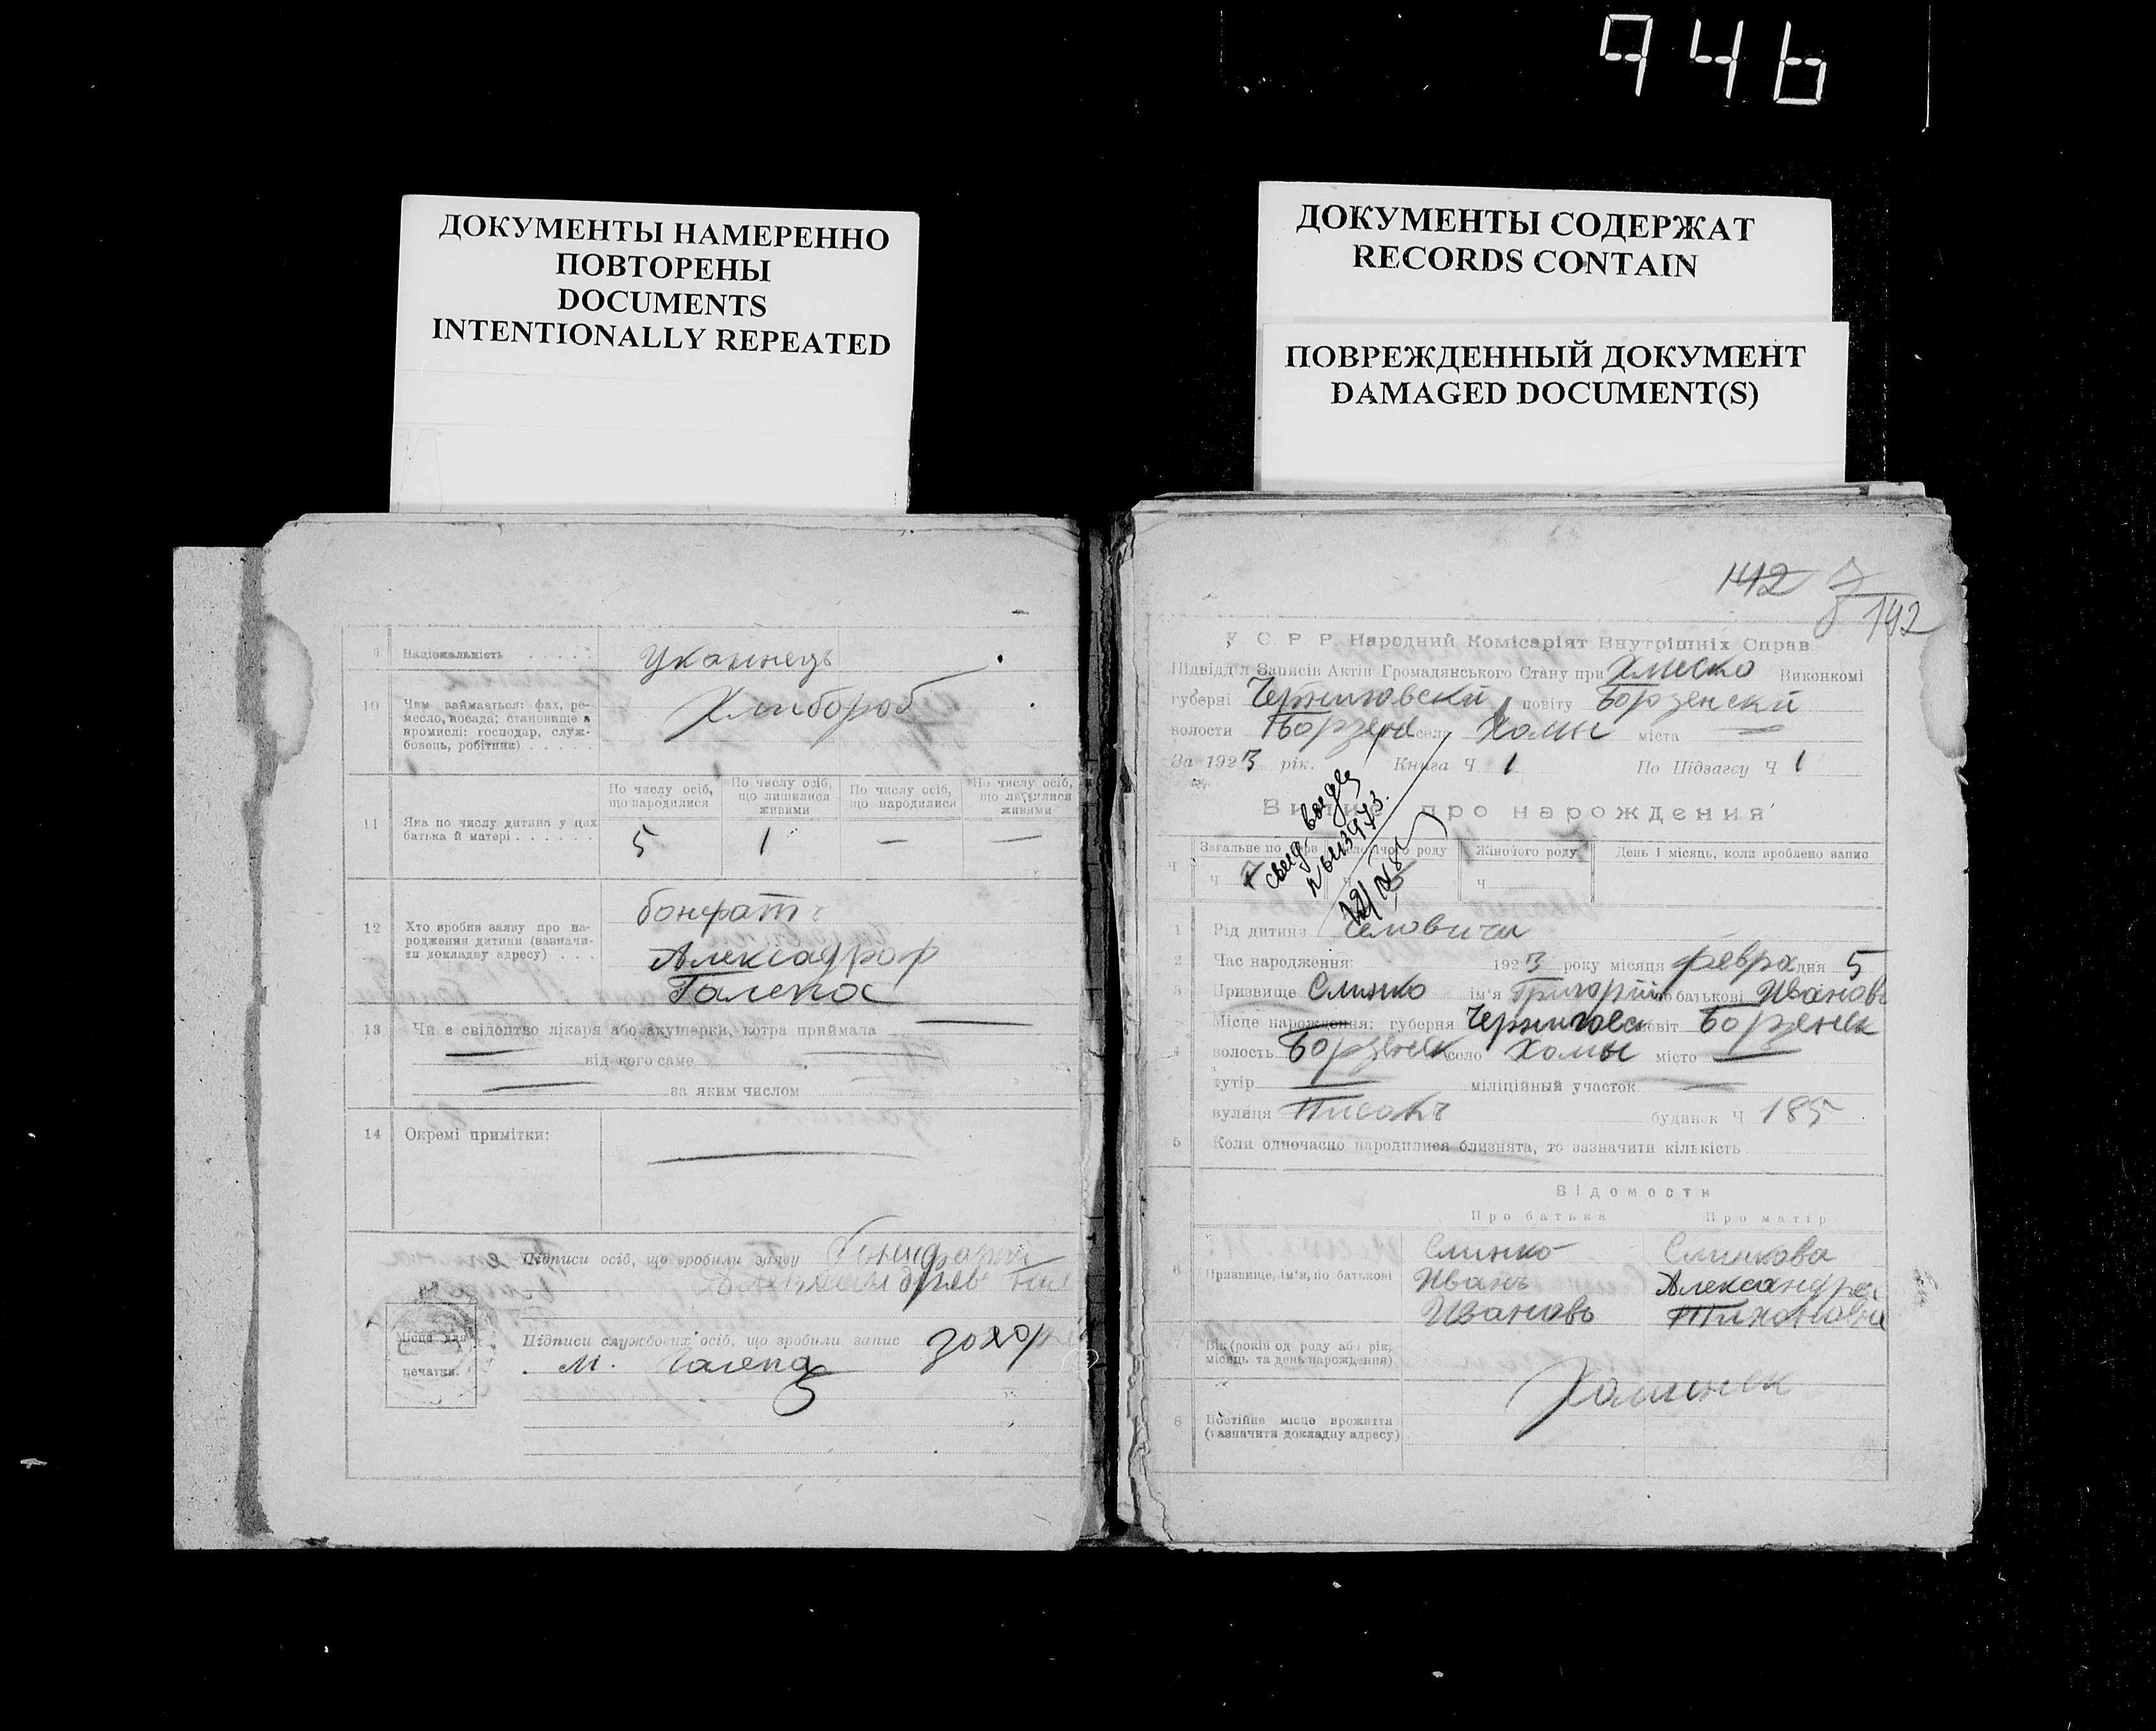 946
ДОКУМЕНТЫ НАМЕРЕННО
ПОВТОРЕНЫ
DOCUMENTS
INTENTIONALLY REPEATED
ДОКУМЕНТЫ СОДЕРЖАТ
RECORDS CONTAIN
ПОВРЕЖДЕННЫЙ ДОКУМЕНТ
DAMAGED DOCUMENT(S)
9 Національність
10 Чим займається: фах, ре-
месло, посада; становище в
промислі: господар, служ-
бовець, робітник)
Хлибороб
11 Яка по числу дитина у цих
батька й матері
По числу осіб, що народилися
По числу осіб, що лишилися живими
По числу осіб, що народилися
По числу осіб, що лишилися живими
5 1 — —
12 Хто зробив заяву про на-
родження дитини (зазначи-
ти докладну адресу)
Галепа
13 Чи є свідоцтво лікаря або акушерки, котра приймала —
— від кого саме —
— за яким числом
14 Окремі примітки: —
Підписи осіб, що зробили заяву
Підписи службових осіб, що зробили запис
М. Галепа
Місце для
печатки.
142 7
142
У С Р Р Народний Комісаріят Внутрішніх Справ
Підвідділ Записів Актів Громадянського Стану при Виконкомі
губерні Черниговскй повіту Борзенскй
волости Борзенс села Холмы міста —
За 1923 рік. Книга Ч 1 По Підзагсу Ч 1
Випис про народження
Загальне по роду Жіночого роду День і місяць, коли зроблено запис
Ч 7 Ч Ч
1 Рід дитини
2 Час народження: 1923 року місяця февра дня 5
3 Призвище Слинко ім'я Григорій по батькові Иванов
4 Місце народження: губерня Чернигов повіт Борзенск
волость Борзенск село Холмы місто —
хутір — міліційный участок —
вулиця будинок Ч 185
5 Коли одночасно народилися близнята, то зазначити кількість
Відомости
Про батька Про матір
6 Призвище, ім'я, по батькові
Слинко Слинкова
Иванъ Александра
Ивановъ Тихоновна
7 Вік (років од роду або рік,
місяць та день народження)
8 Постійне місце прожиття
(зазначити докладну адресу)